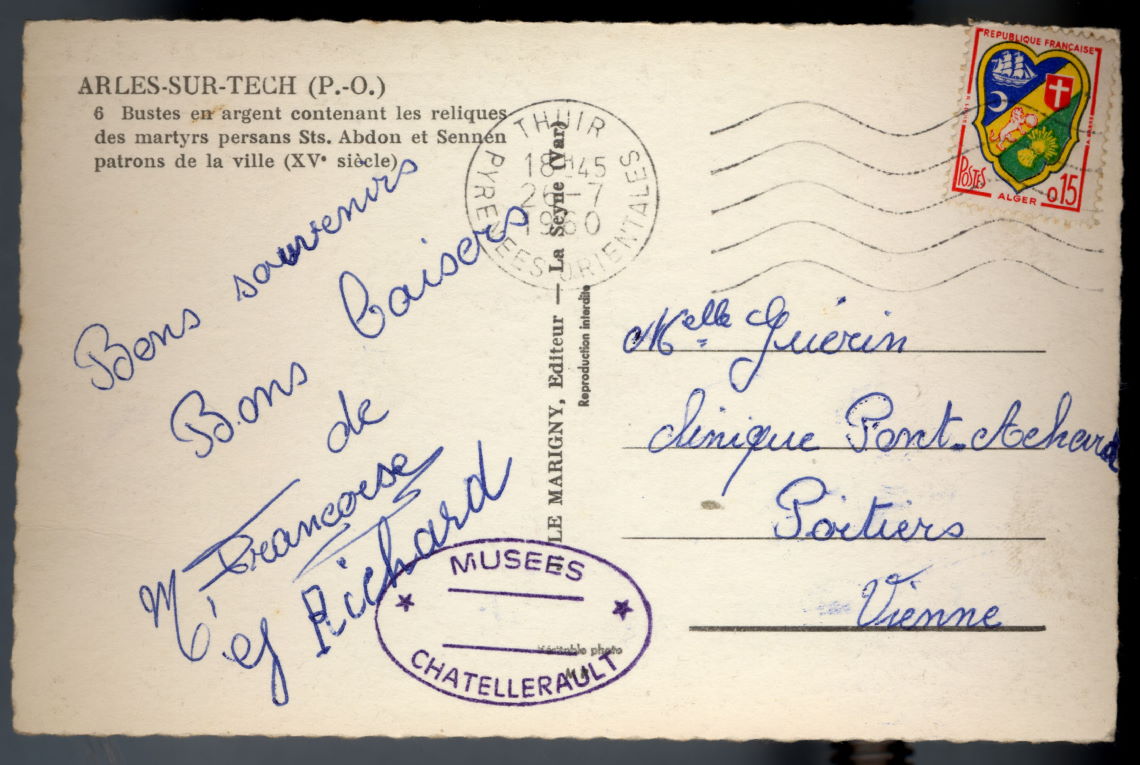 ARLES-SUR-TECH (P.-O.)
6 Bustes en argent contenant les reliques
des martyrs persans Sts. Abdon et Sennén
patrons de la ville (XVe siècle)
Bons souvenirs
Bons baisers
de
Françoise
et Richard
THUIR
18H45
26-7
1960
PYRENEES ORIENTALES
REPUBLIQUE FRANÇAISE
POSTES
ALGER
0,15
LE MARIGNY, Editeur — La Seyne (Var)
Reproduction interdite
Melle Guérin
clinique Pont-Achard
Poitiers
Vienne
MUSEES
CHATELLERAULT
Véritable photo